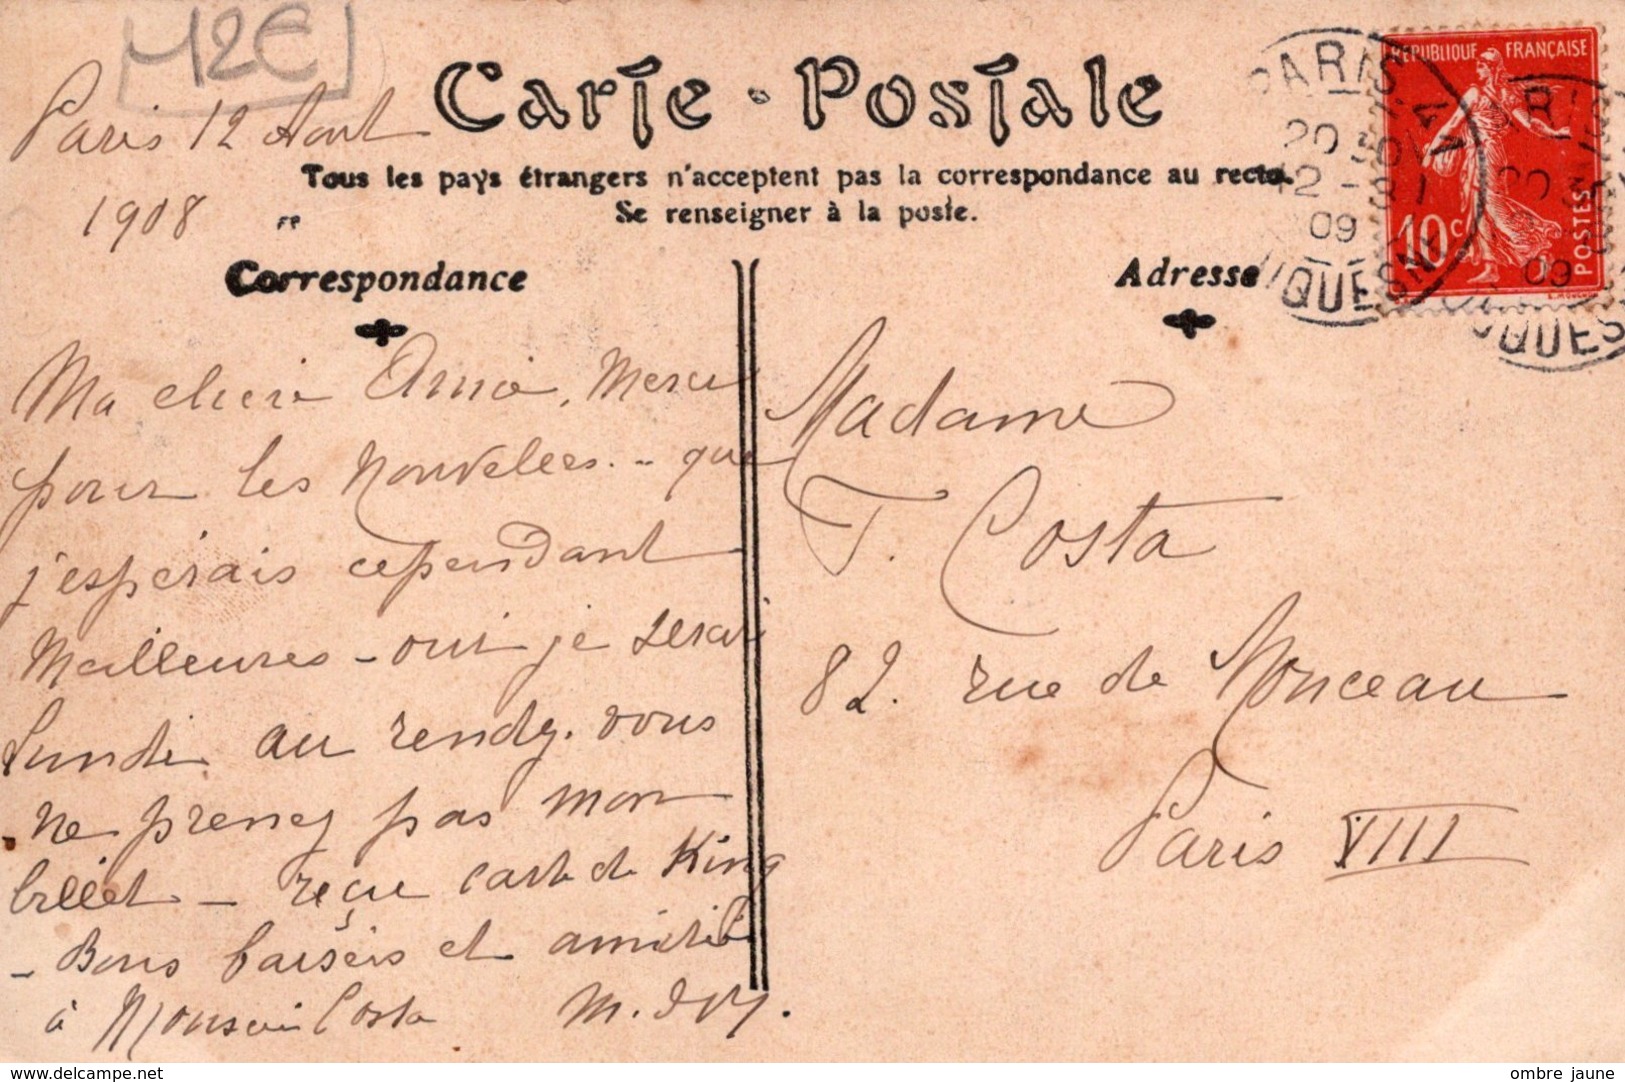 12€
Carte-Postale
Paris 12 Aout
1908
Tous les pays étrangers n'acceptent pas la correspondance au recto.
Se renseigner à la poste.
Correspondance
Ma chere Amie, Merci
pour les nouvelles. - que
j'espérais cependant
meilleures - oui je serai
Lundi au rendz. vous
ne prenez pas mon
billet - reçu carte de King
- Bons baisers et amitiés
à Monsieur Costa M.
Adresse
Madame
T. Costa
82. rue de Monceau
Paris VIII
REPUBLIQUE FRANÇAISE
10c
POSTES
PARIS
20
12 - 8
09
09
Delcampe.net
ombre jaune